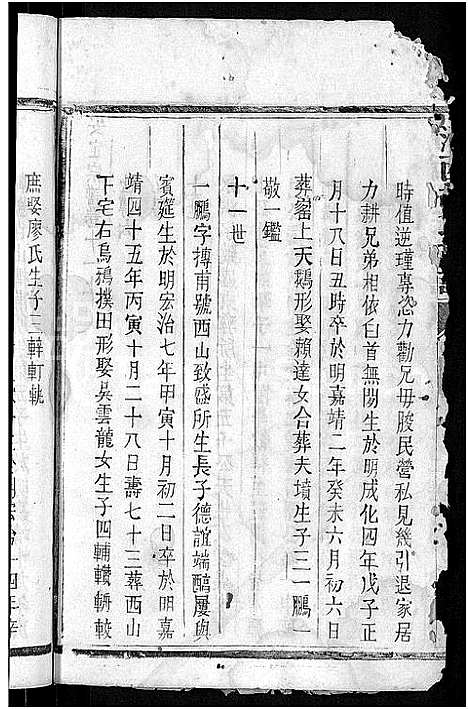 時值逆瑾專恣力勸兄毋朘民營私見幾引退家居
力耕兄弟相依白首無間生於明成化四年戊子正
月十八日丑時卒於明嘉靖二年癸未六月初六日
葬窰上天鵝形娶賴達女合葬夫墳生子三一鵬一
敬一鑑
十一世
一鵬字摶甫號西山致盛所生長子德誼端醕屢與
賓筵生於明宏治七年甲寅十月初二日卒於明嘉
靖四十五年丙寅十月二十八日壽七十三葬西山
下宅右烏鴉撲田形娶吳雲龍女生子四輔轒輧較
庶娶廖氏生子三輧軒軌